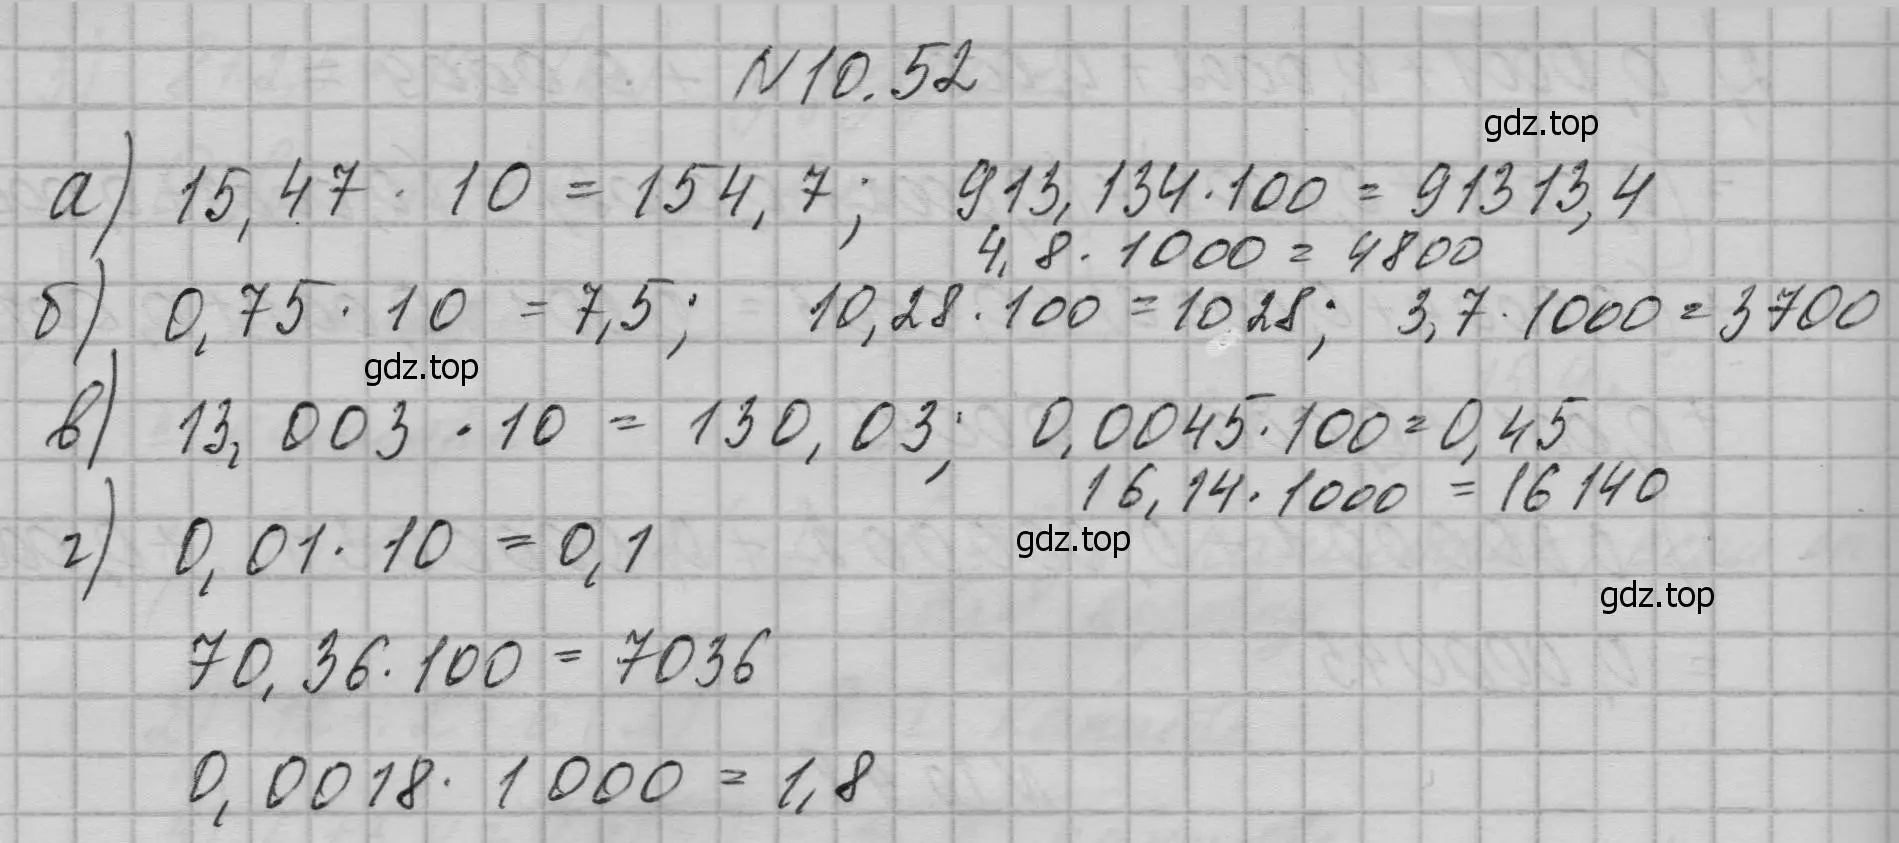 N10.52
gdz.top
а) 15,47 · 10 = 154,7; 913,134 · 100 = 91313,4
4,8 · 1000 = 4800
б) 0,75 · 10 = 7,5; 10,28 · 100 = 1028; 3,7 · 1000 = 3700
gdz.top
в) 13,003 · 10 = 130,03; 0,0045 · 100 = 0,45
16,14 · 1000 = 16140
г) 0,01 · 10 = 0,1
gdz.top
gdz.top
70,36 · 100 = 7036
0,0018 · 1000 = 1,8